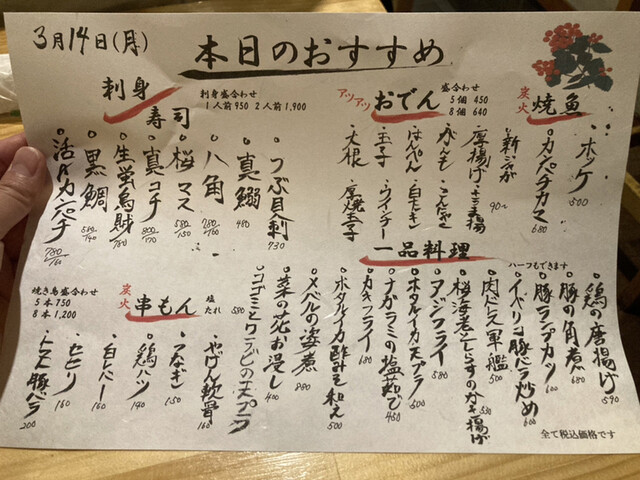 3月14日(月)
本日のおすすめ
炭火 焼魚
ホッケ 500
カンパチカマ 680
アツアツ おでん
盛合わせ
5個 450
8個 640
新じゃが
厚揚げ
がんも
こんにゃく
はんぺん
白モキシ
玉子
ウインナー
大根
厚焼玉子
90〜
刺身
寿司
刺身盛合わせ
1人前950 2人前1,900
つぶ貝刺 730
真鰯 480
八角 780/160
桜マス 580/150
真コチ 800/170
生蛍烏賊
黒鯛
活〆カンパチ 780/160
一品料理
ハーフもできます
鶏の唐揚げ 590
豚の角煮 680
豚ランプカツ 600
イベリコ豚バラ炒め 600
肉どらえ軍艦 500
桜海老としらすのかき揚げ 550
アジフライ 580
ホタルイカ天プラ 500
ナガラミの塩茹で 450
カキフライ 680
ホタルイカ酢みそ和え 500
メバルの姿煮 880
菜の花お浸し 400
コゴミとワラビの天プラ 580
炭火 串もん
塩
たれ
焼き鳥盛合わせ
5本750
8本1,200
やげん軟骨 160
つなぎ 150
鶏ハツ 140
白レバー 160
せせり 160
トマト豚バラ 200
全て税込価格です